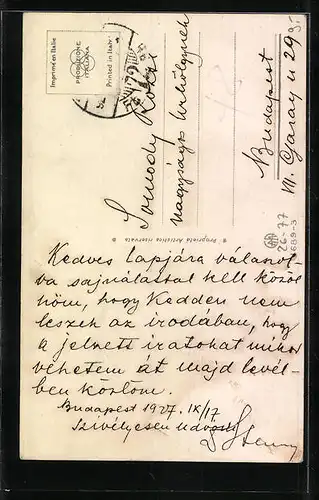 Imprimé en Italie
PRODUZIONE
ITALIANA
Printed in Italy
Somody
Nagyságos Úrhölgynek
Budapest
VII. Garay u 29
26-77
689-3
Proprietà Artistica riservata
Kedves lapjára válaszol-
va sajnálattal kell közöl
nöm, hogy Kedden nem
leszek az irodában, hogy
a jelzett iratokat mikor
vehetem át majd levél-
ben közlöm.
Budapest 1927. IX/17
Szivélyesen